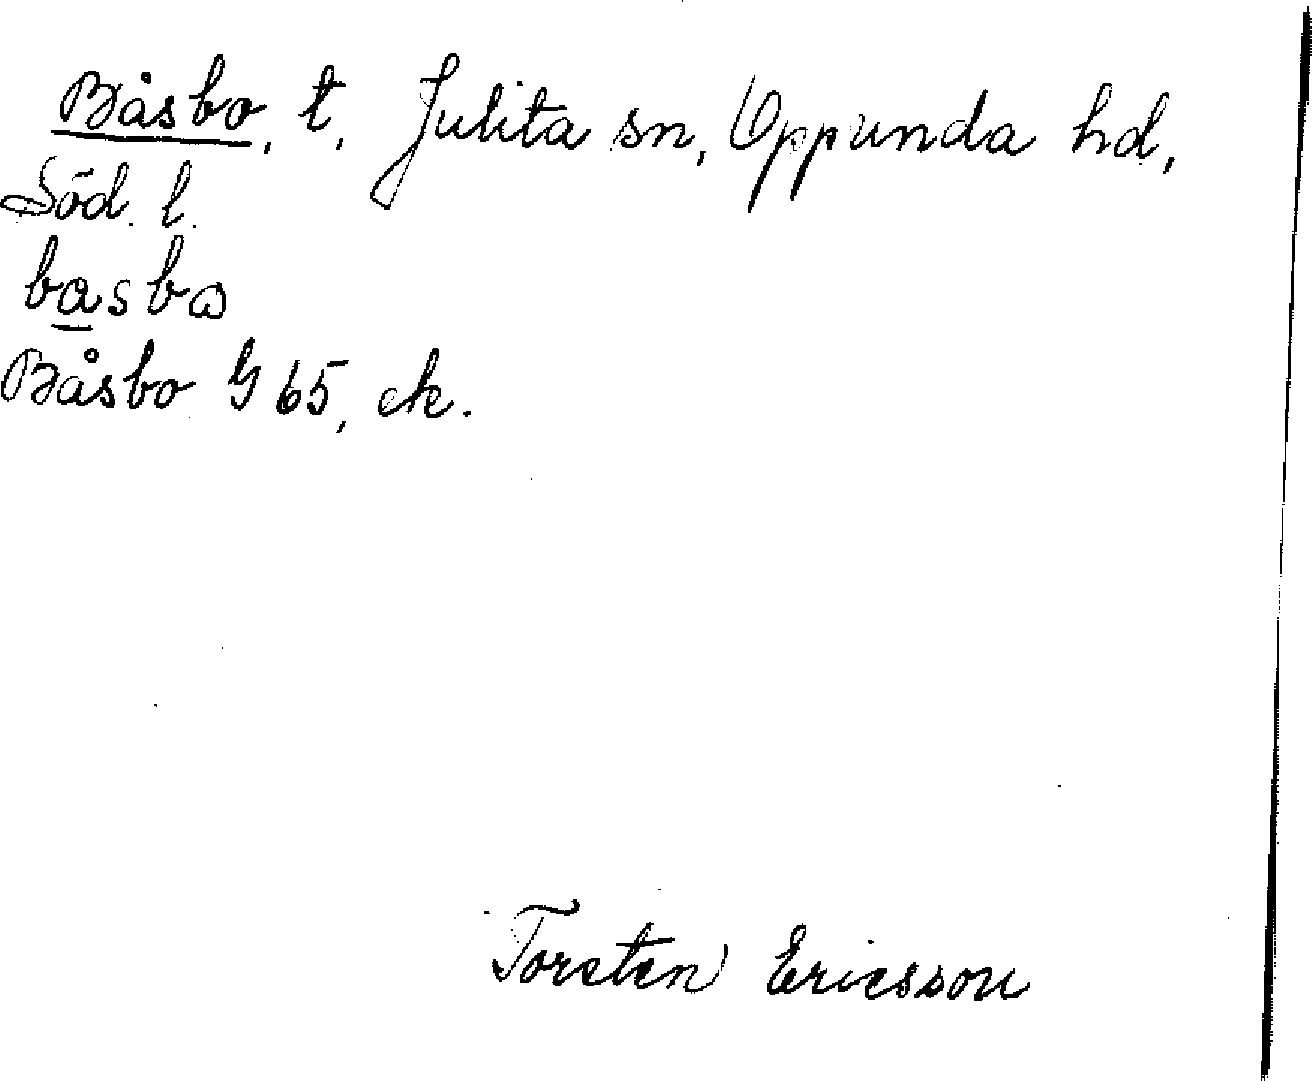 Båsbo, t. Julita sn, Oppunda hd,
Söd. l.
basbω
Båsbo G 65, ek.
Torsten Ericsson